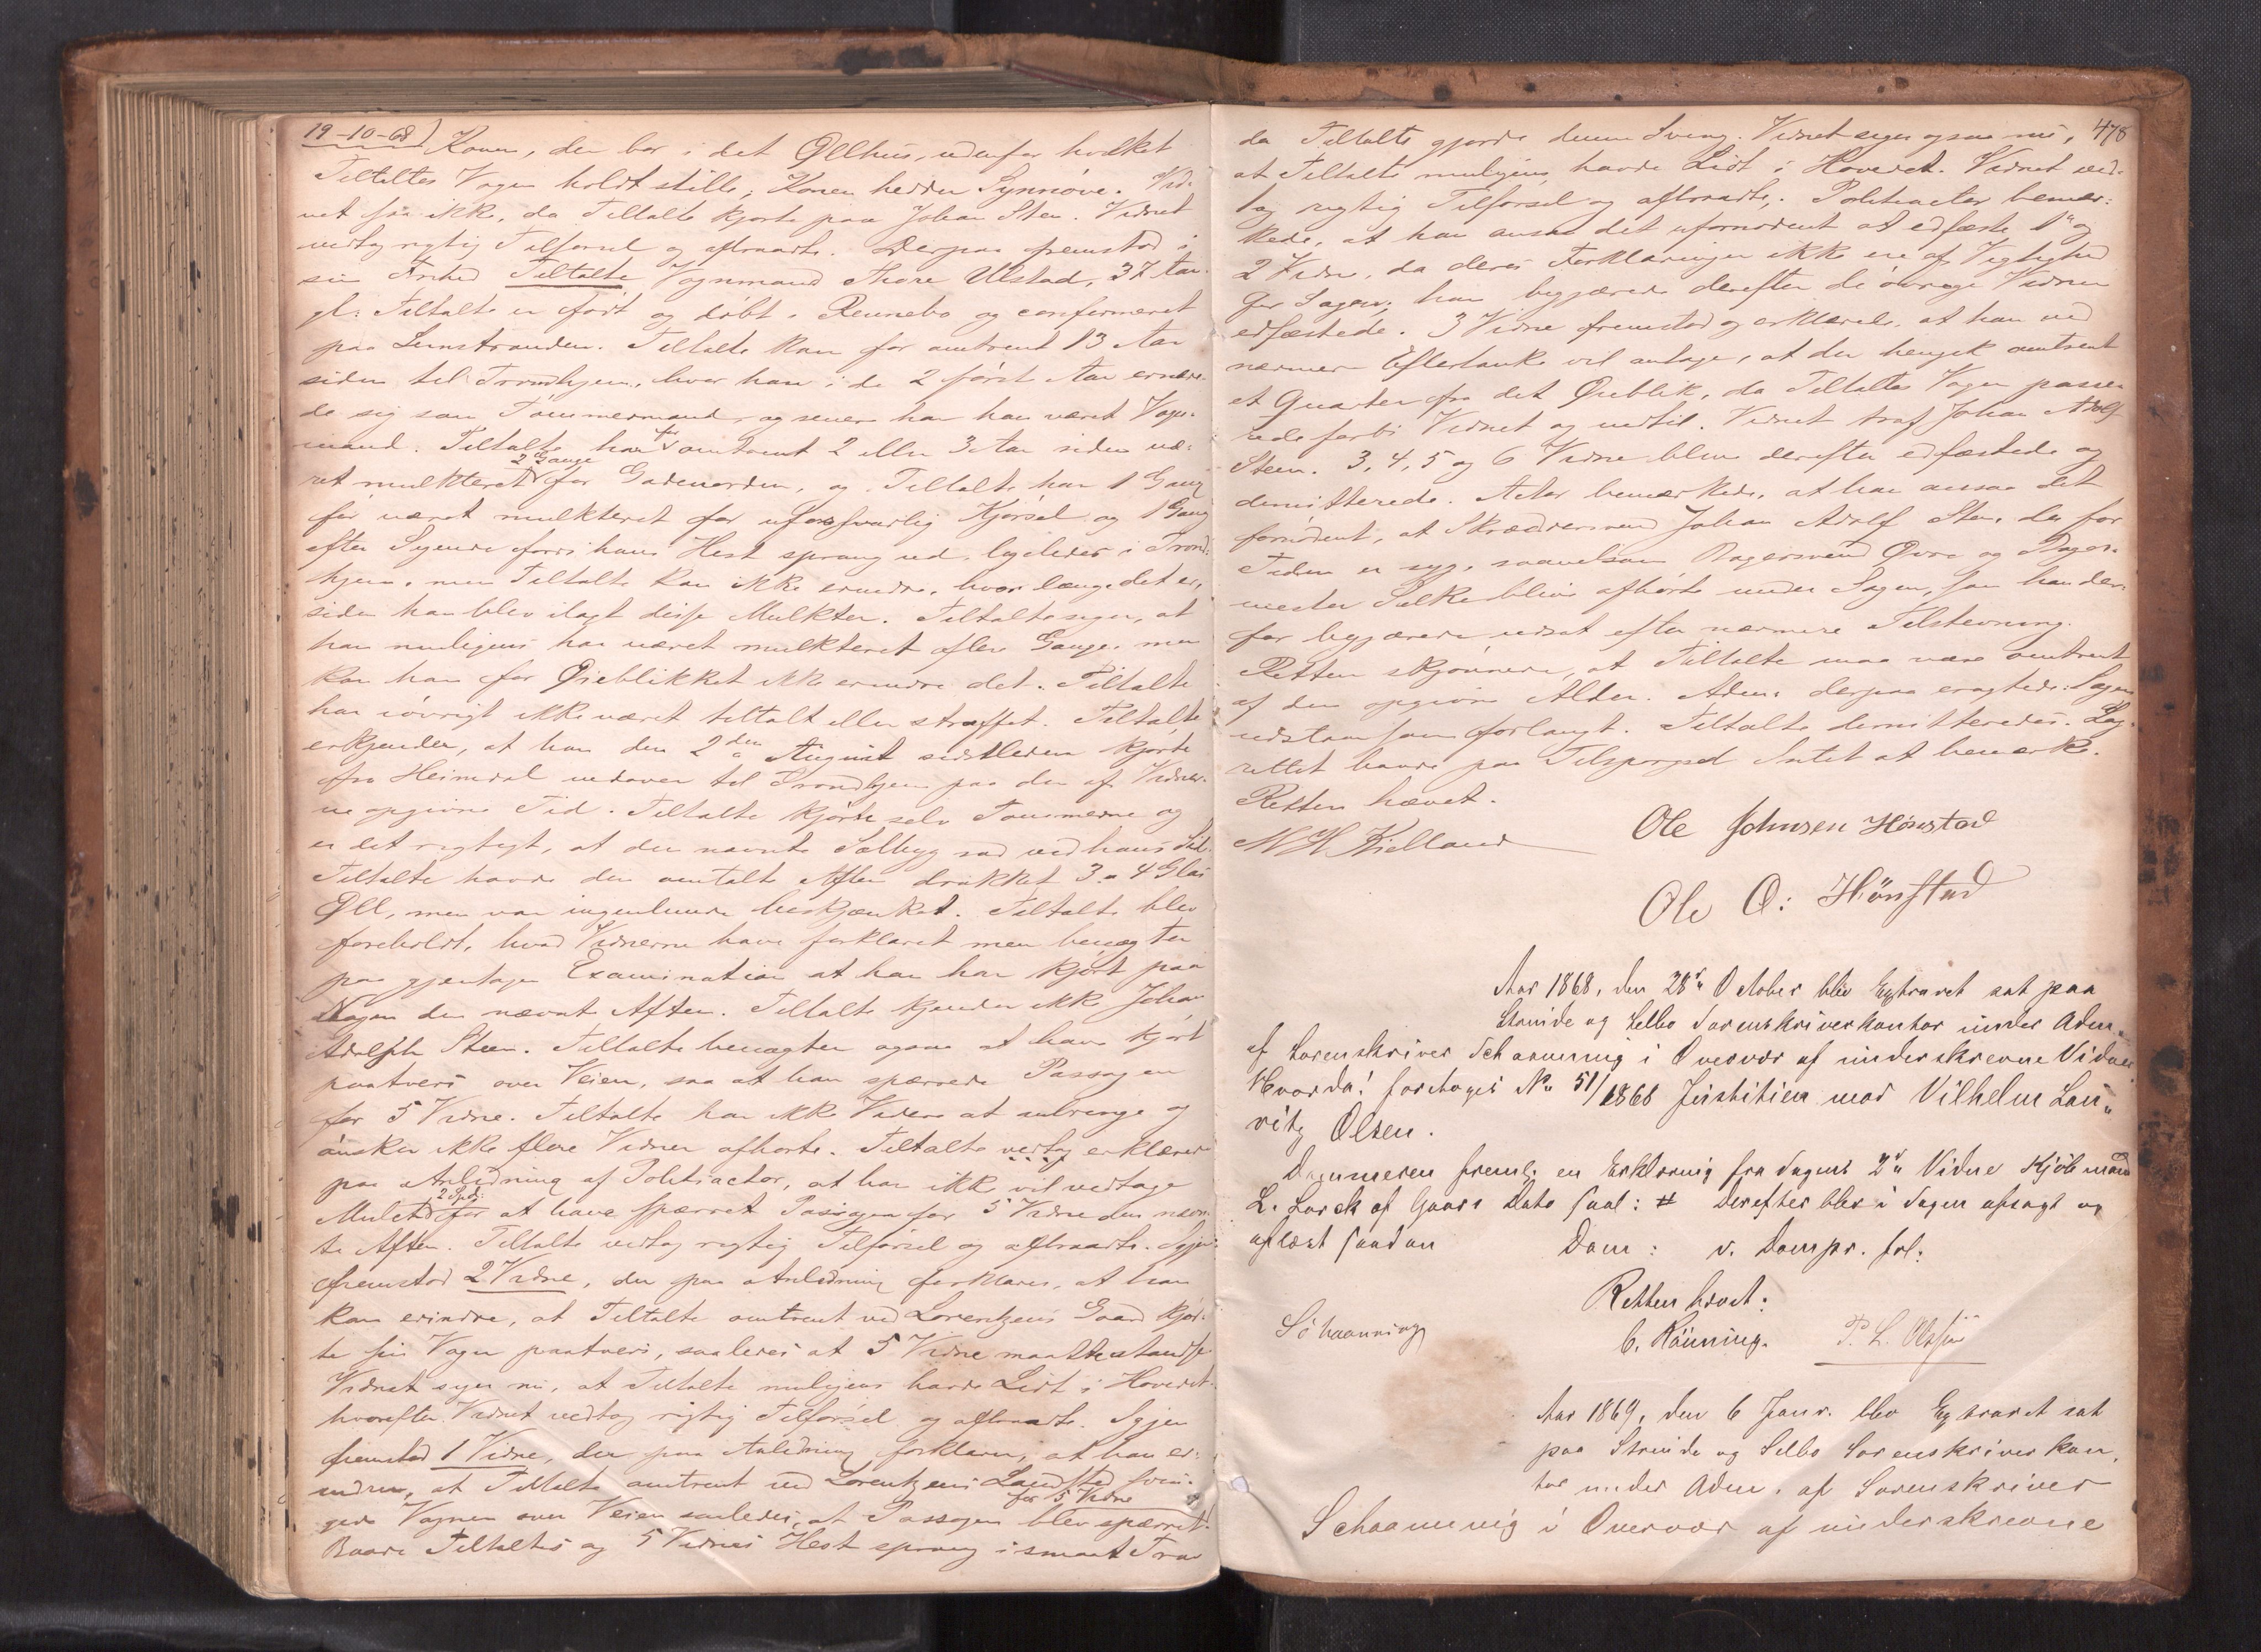 19-10-68) Konen, der bor i det Øllhus, udenfor hvilket
Tiltaltes Vogn holdt stille; Konen hedder Synnøve. Vid-
net saa ikke, da Tiltalte kjørte paa Johan Sten. Vidnet
vedtog rigtig Tilførsel og aftraadte. Derpaa fremstod i
sin Frihed Tiltalte Vognmand Thore Ulstad, 37 Aar
gl: Tiltalte er født og døbt i Rennebo og confirmeret
paa Leinstranden. Tiltalte kom for omtrent 13 Aar
siden til Trondhjem, hvor han i de 2 først Aar ernære-
de sig som Tømmermand og senere har han været Vogn-
mand. Tiltalte har for omtrent 2 eller 3 Aar siden væ-
ret mulkteret 2 Gange for Gadeuorden, og Tiltalte har 1 Gang
før været mulkteret for uforsvarlig Kjørsel og 1 Gang
efter Sigende fordi hans Hest sprang ud, ligeledes i Trond-
hjem, men Tiltalte kan ikke erindre, hvor længe det er,
siden han blev ilagt disse Mulkter. Tiltalte siger, at
han muligens har været mulkteret aflere Gange, men
kan han for Øieblikket ikke erindre det. Tiltalte
har iøvrigt ikke været tiltalt eller straffet. Tiltalte
erkjender, at han den 2den August sidstleden kjørte
fra Heimdal nedover til Trondhjem paa den af Vidner-
ne opgivne Tid. Tiltalte kjørte selv Tømmerne og
er det rigtigt, at den nævnte Solbyg sad ved hans Side.
Tiltalte havde den omtalte Aften drukket 3 a 4 Glas
Øll, men var ingenlunde beskjænket. Tiltalte blev
foreholdt, hvad Vidnerne have forklaret men benægter
paa gjentagen Examination at han har kjørt paa
Nogen den nævnt Aften. Tiltalte kjender ikke Johan
Adolph Steen. Tiltalte benægter ogsaa at have kjørt
paatvers over Veien, saa at han spærrede Passagen
for 5 Vidne. Tiltalte har ikke Videre at anbringe og
ønsker ikke flere Vidner afhørte. Tiltalte vedtog erklærer
paa Anledning af Politiactor, at han ikke vil vedtage
Mulct 2 Spd: for at have spærret Passagen for 5 Vidne den nævn-
te Aften. Tiltalte vedtog rigtig Tilførsel og aftraadte. Igjen
fremstod 2 Vidne, der paa Anledning forklarer, at han
kan erindre, at Tiltalte omtrent ved Lorentzens Gaard kjør-
te sin Vogn paatvers, saaledes at 5 Vidne maatte standse
Vidnet siger nu, at Tiltalte muligens havde Lidt i Hovedet
hvorefter Vidnet vedtog rigtig Tilførsel og aftraadte. Igjen
fremstod 1 Vidne, der paa Anledning forklarer, at han er-
indrer, at Tiltalte omtrent ved Lorentzens Landsted svin-
gede Vognen over Veien saaledes, at Passagen for 5 Vidne blev spærret.
Baade Tiltaltes og 5 Vidnes Hest sprang i smaat Trav
478
da Tiltalte gjorde denne Sving. Vidnet siger ogsaa nu,
at Tiltalte muligens havde Lidt i Hovedet. Vidnet ved-
tog rigtig Tilførsel og aftraadte. Politiactor bemær-
kede, at han ansaa det ufornødent at edfæste 1 og
2 Vidne, da deres Forklaringer ikke ere af Vigtighed
for Sagen; han begjærede derefter de øvrige Vidner
edfæstede. 3 Vidne fremstod og erklærede, at han ved
nærmere Eftertanke vil antage, at der hengik omtrent
et Quarter fra det Øieblik, da Tiltaltes Vogn passe-
rede forbi Vidnet og indtil Vidnet traf Johan Adolf
Steen. 3, 4, 5 og 6 Vidne bleve derefter edfæstede og
demitterede. Actor bemærkede, at han ansaa det
fornødent, at Skrædersvend Johan Adolf Sten, der for
Tiden er syg, saavelsom Bagersvend Øvre og Bager-
mester Sølke blive afhørte under Sagen, som han der-
for begjærede udsat efter nærmere Tilstevning.
Retten skjønnede, at Tiltalte maa være omtrent
af den opgivne Alder. Adm. derpaa eragtede: Sagen
udstaar som forlangt. Tiltalte demitteredes. Lag-
rettet havde paa Tilspørgsel Intet at bemærke.
Retten hævet.
M H Kielland Ole Johnsen Hönstad
Ole O: Hönstad
Aar 1868, den 28de October blev Extraret sat paa
Strinde og Selbo Sorenskriverkontor under Adm.
af Sorenskriver Schaanning i Overvær af underskrevne Vidner
Hvorda: foretoges No 51/1868 Justitien mod Vilhelm Lau-
ritz Olsen.
Dommeren freml. en Erklæring fra Sagens 2det Vidne Kjøbmand
L. Lorck af Gaars Dato saal: # Derefter blev i Sagen afsagt og
aflæst saadan Dom: v. Dompr. fol:
Retten hævet:
Schaanning C. Rönning. P. L. Olsen
Aar 1869, den 6 Janr. blev Extraret sat
paa Strinde og Selbo Sorenskriverkon-
tor under Adm. af Sorenskriver
Schaanning i Overvær af underskrevne